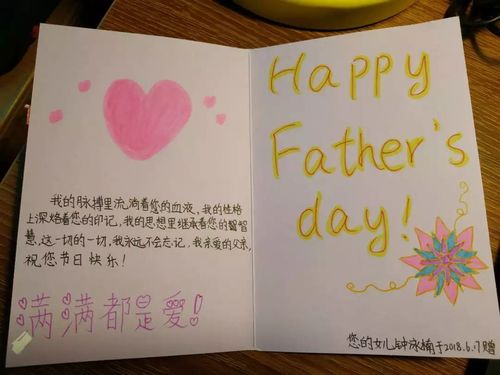 我的脉搏里流淌着您的血液，我的性格
上深烙着您的印记，我的思想里继承着您的智
慧，这一切的一切，我永远不会忘记，我亲爱的父亲，
祝您节日快乐！
满满都是爱！
Happy
Father's
day!
您的女儿钟泳楠于2018.6.17赠